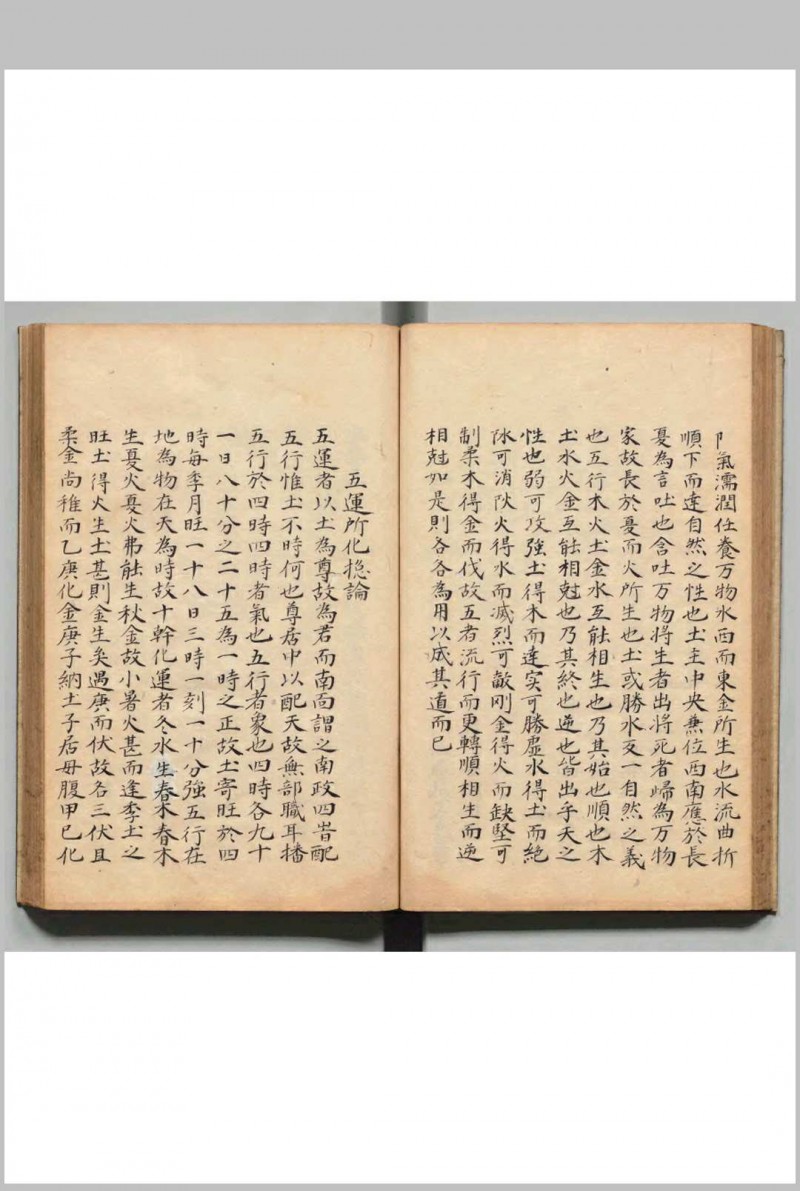 卩氣濡潤任養万物水西而東金所生也水流曲折
順下而逹自然之性也土主中央兼位西南應於長
憂為言吐也含吐万物將生者出將死者㱕為万物
家故長於憂而火所生也土或勝水反一自然之義
也五行木火土金水互能相生也乃其始也順也木
土水火金互能相尅也乃其終也逆也皆出乎天之
性也弱可攻強土得木而逹实可勝虛水得土而絶
可消火得水而滅烈可敵剛金得火而缺堅可
制柔木得金而伐故五者流行而更轉順相生而逆
相尅如是則各各為用以成其道而已
五運所化捴論
五運者以土為尊故為君而南面謂之南政四皆配
五行惟土不時何也尊居中以配天故無部職耳播
五行於四時四時者氣也五行者象也四時各九十
一日八十分之二十五為一時之正故土寄旺於四
時每季月旺一十八日三時一刻一十分強五行在
地為物在天為時故十幹化運者冬水生春木春木
生憂火憂火弗能生秋金故小暑火甚而逢季土之
旺土得火生土甚則金生矣遇庚而伏故名三伏且
柔金尚稚而乙庚化金庚子納土子居母腹甲巳化